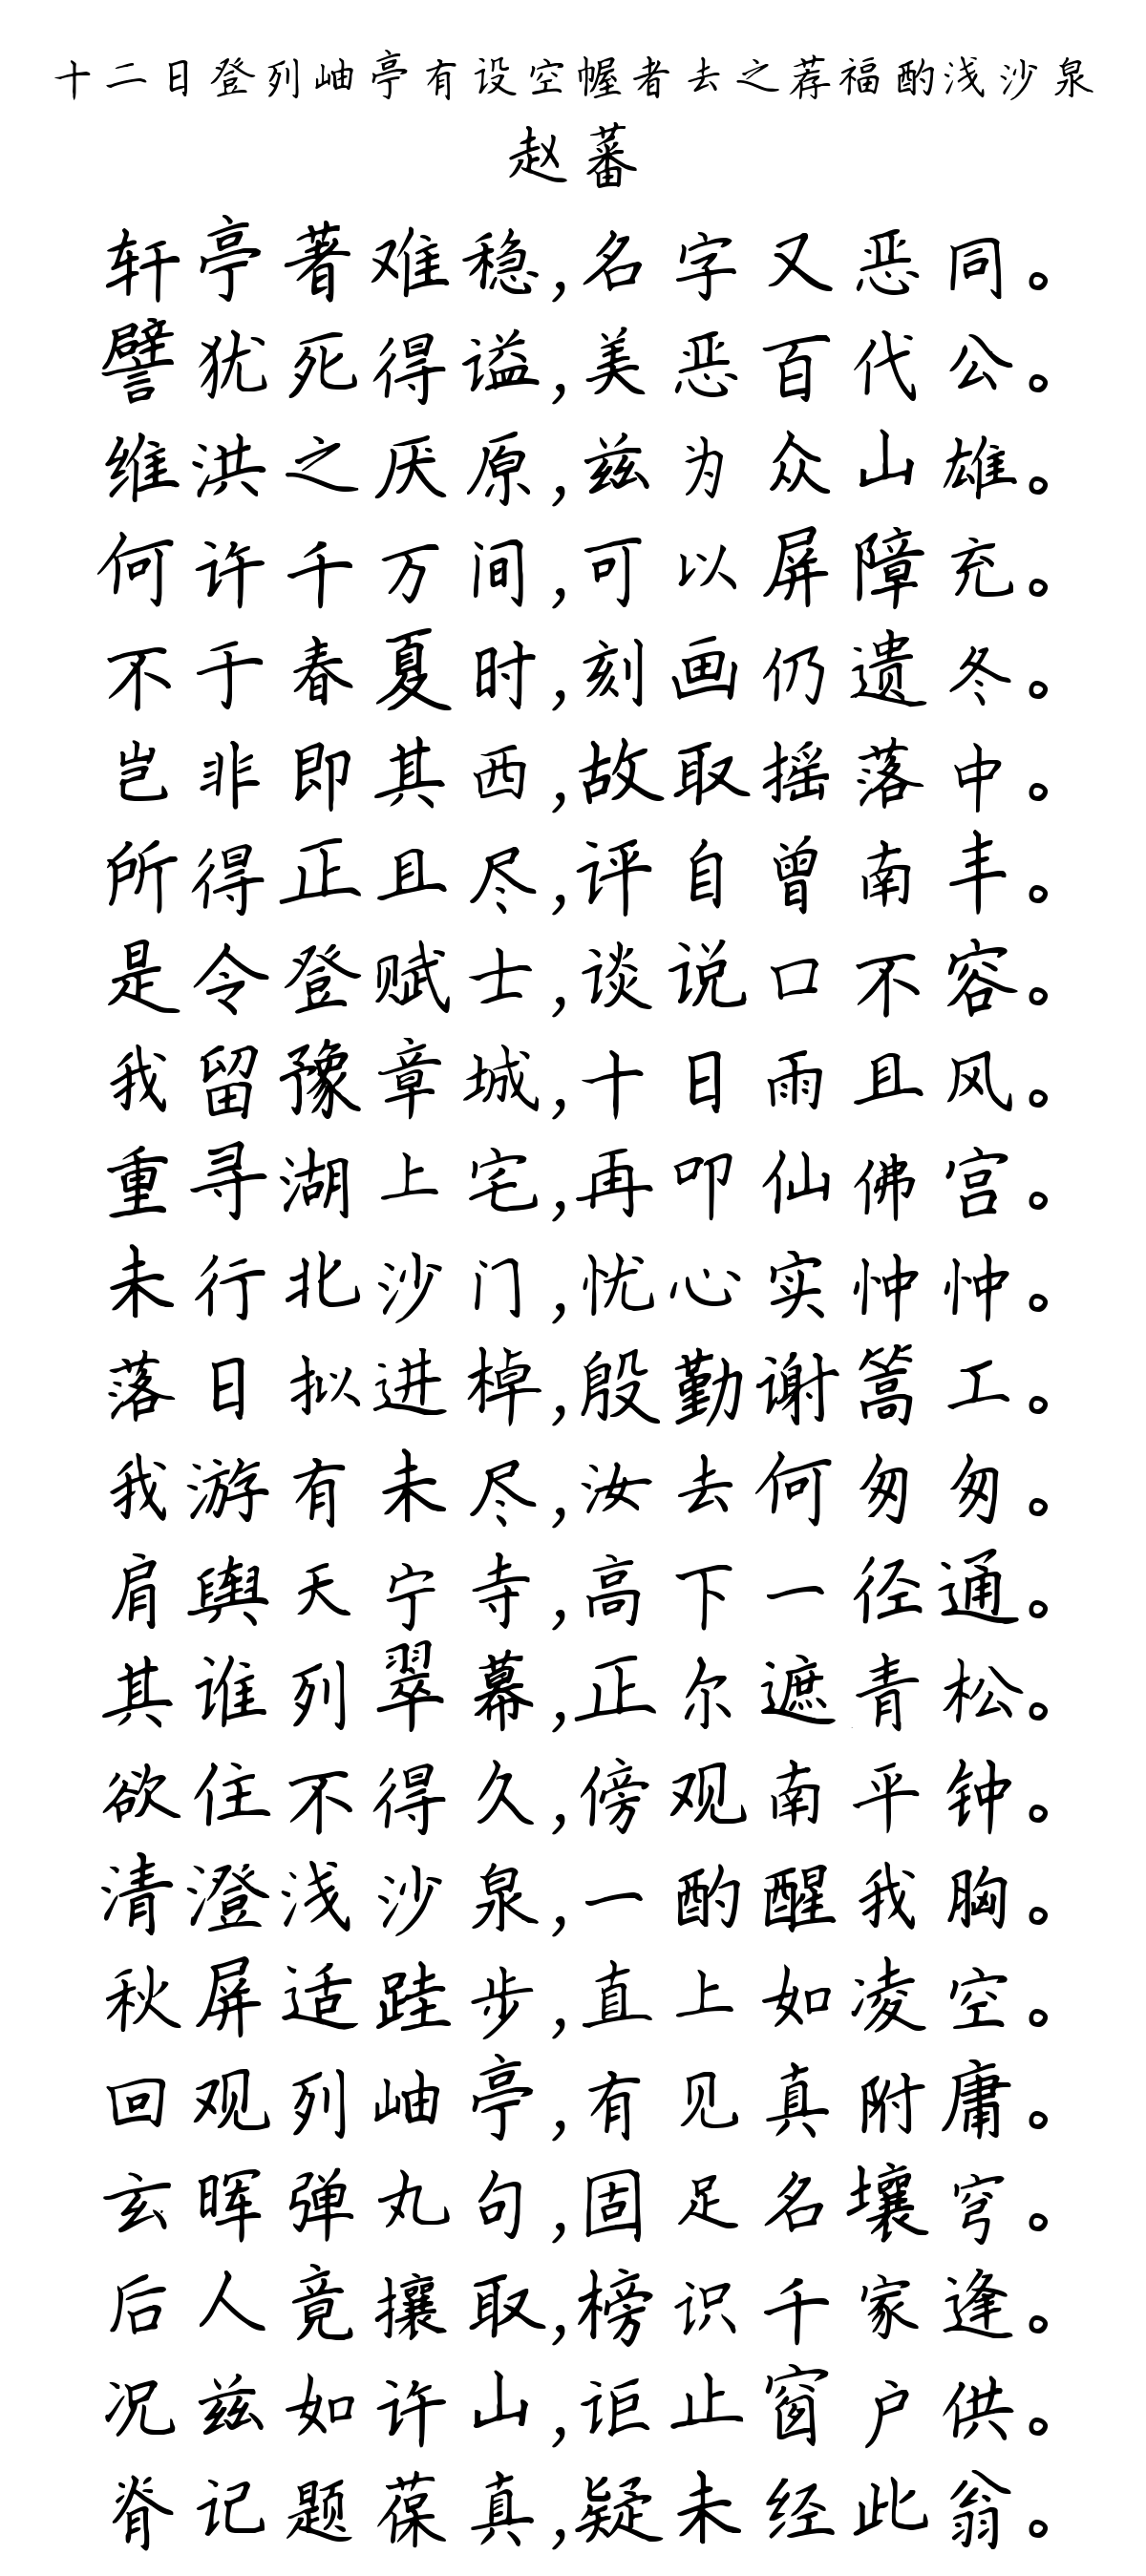 十二日登列岫亭有设空幄者去之荐福酌浅沙泉
赵蕃
轩亭著难稳,名字又恶同。
譬犹死得谥,美恶百代公。
维洪之厌原,兹为众山雄。
何许千万间,可以屏障充。
不于春夏时,刻画仍遗冬。
岂非即其西,故取摇落中。
所得正且尽,评自曾南丰。
是令登赋士,谈说口不容。
我留豫章城,十日雨且风。
重寻湖上宅,再叩仙佛宫。
未行北沙门,忧心实忡忡。
落日拟进棹,殷勤谢篙工。
我游有未尽,汝去何匆匆。
肩舆天宁寺,高下一径通。
其谁列翠幕,正尔遮青松。
欲住不得久,傍观南平钟。
清澄浅沙泉,一酌醒我胸。
秋屏适跬步,直上如凌空。
回观列岫亭,有见真附庸。
玄晖弹丸句,固足名壤穹。
后人竟攘取,榜识千家逢。
况兹如许山,讵止窗户供。
脊记题葆真,疑未经此翁。